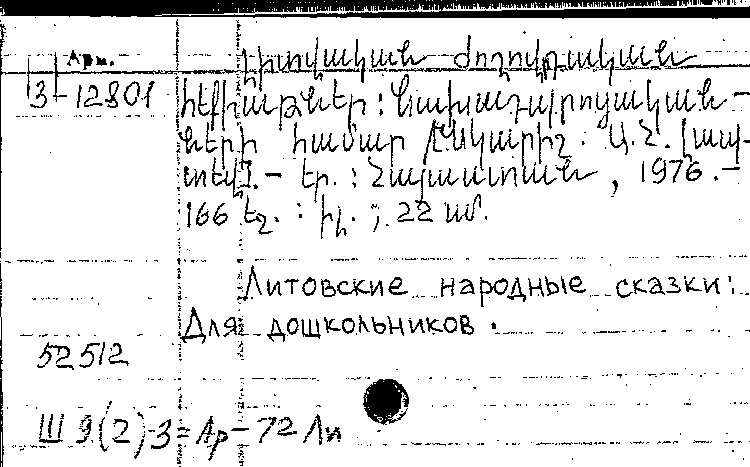 Арм.
Լիտվական ժողովրդական
3-12801
հեքիաթներ : Նախադպրոցական-
ների համար /Նկարիչ. Ա.Շ.
տեվ/. - Եր. : Հայաստան, 1976. -
166 էջ. : իլ. ; 22 սմ.
Литовские народные сказки:
Для дошкольников.
52512
III 9(2)-3=Ар-72 Ли